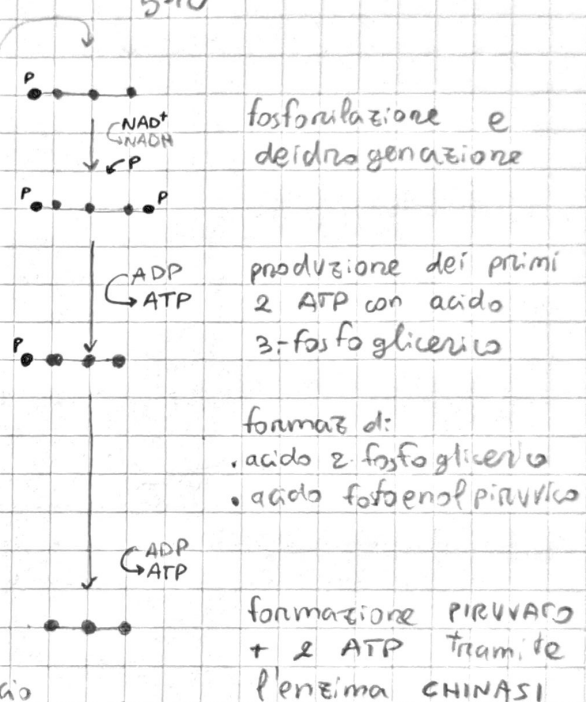 5-10
P
NAD+
NADH
P
fosforilazione e
deidrogenazione
P P
ADP
ATP
produzione dei primi
2 ATP con acido
3-fosfoglicerico
P
formaz di:
. acido 2 fosfoglicerico
. acido fosfoenolpiruvico
ADP
ATP
formazione PIRUVATO
+ 2 ATP tramite
l'enzima CHINASI